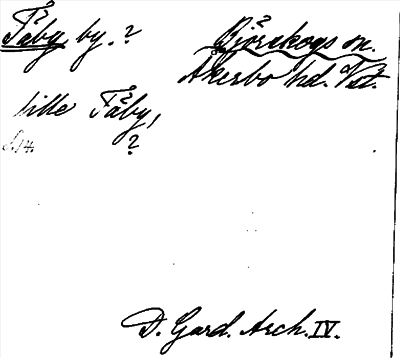 Tåby by. ?
Björskogs sn.
Åkerbo hd. Vst.
lille Tåby,
?
D. Gard. Arch. IV.